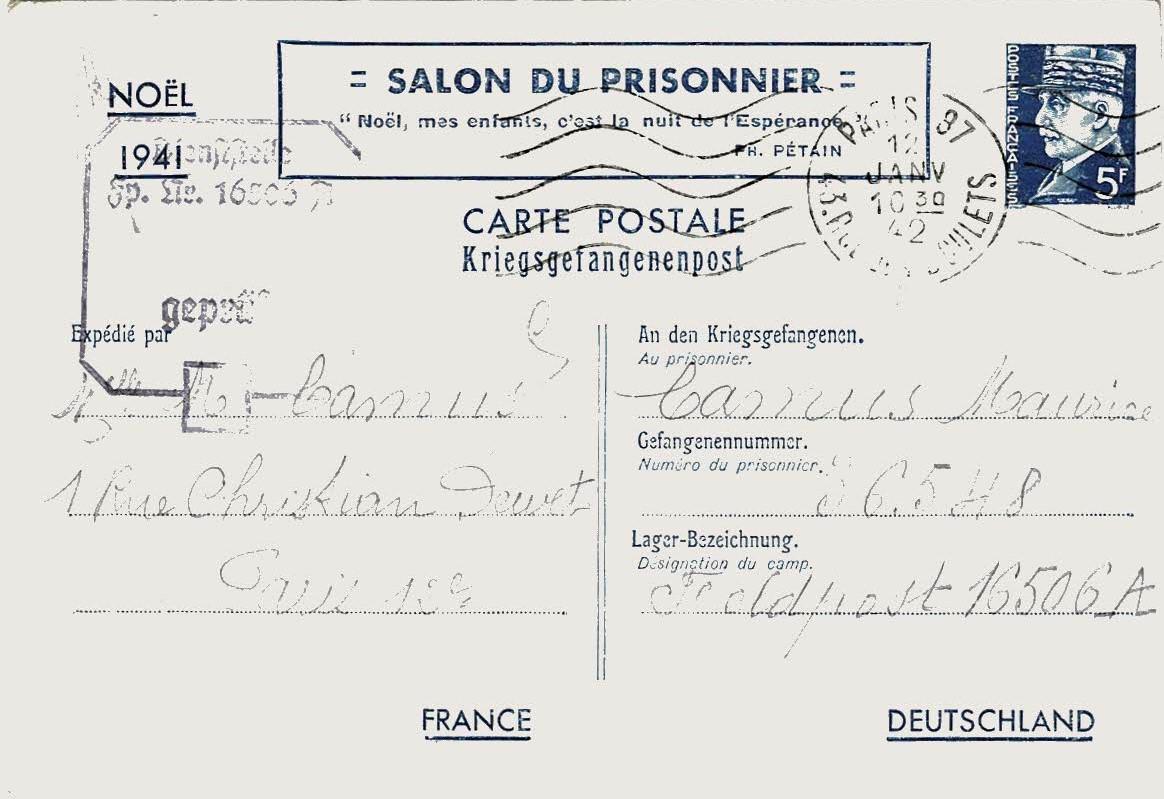 NOËL
1941
= SALON DU PRISONNIER =
“ Noël, mes enfants, c'est la nuit de l'Espérance.
PH. PÉTAIN
POSTES FRANÇAISES
5F
PARIS 97
12
JANV
10 30
42
CARTE POSTALE
Kriegsgefangenenpost
Dienststelle
Fp. Nr. 16506 A
geprüft
Expédié par
Melle M Camus
1 Rue Christian Dewet
Paris 12e
An den Kriegsgefangenen.
Au prisonnier.
Camus Maurice
Gefangenennummer.
Numéro du prisonnier.
36.548
Lager-Bezeichnung.
Désignation du camp.
Feldpost 16506 A
FRANCE
DEUTSCHLAND